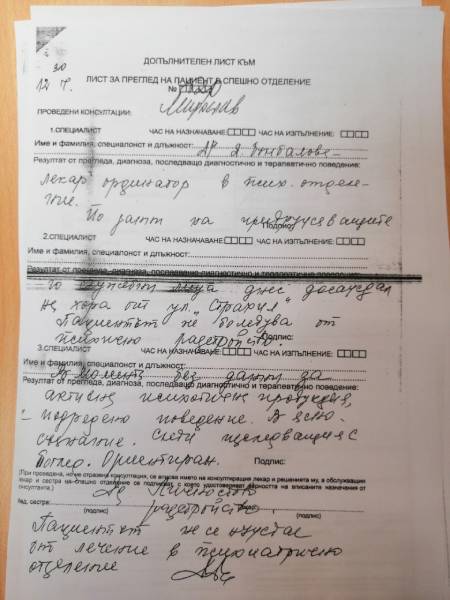 30
12 ч.
ДОПЪЛНИТЕЛЕН ЛИСТ КЪМ
ЛИСТ ЗА ПРЕГЛЕД НА ПАЦИЕНТ В СПЕШНО ОТДЕЛЕНИЕ
№
ПРОВЕДЕНИ КОНСУЛТАЦИИ: Мирослав
1.СПЕЦИАЛИСТ ЧАС НА НАЗНАЧАВАНЕ ЧАС НА ИЗПЪЛНЕНИЕ:
Име и фамилия, специалност и длъжност: Д-р Я.
Резултат от прегледа, диагноза, последващо диагностично и терапевтично поведение:
лекар ординатор в псих. отделе-
ние.
По данни на придружаващите
(Подпис)
2.СПЕЦИАЛИСТ ЧАС НА НАЗНАЧАВАНЕ ЧАС НА ИЗПЪЛНЕНИЕ:
Име и фамилия, специалност и длъжност:
Резултат от прегледа, диагноза, последващо диагностично и терапевтично поведение:
го служебни лица днес досаждал
на хора от ул. „Страхил“
Пациентът не боледува от
психично разстройство. Подпис:
3.СПЕЦИАЛИСТ ЧАС НА НАЗНАЧАВАНЕ ЧАС НА ИЗПЪЛНЕНИЕ:
Име и фамилия, специалност и длъжност:
В момента без данни за
Резултат от прегледа, диагноза, последващо диагностично и терапевтично поведение:
активна психотична продукция,
подредено поведение. В ясно
съзнание. Следи изследващия с
поглед. Ориентиран. Подпис:
(При проведени, но неотразени консултации, се вписва името на консултиращия лекар и решението му, а обслужващи
лекар и сестра на спешно отделение се подписват, с което удостоверяват верността на вписаната назначения от
консултанта.)
Мед. сестра:
Личностово
разстройство.
(подпис) (подпис)
Пациентът не се нуждае
от лечение в психиатрично
отделение